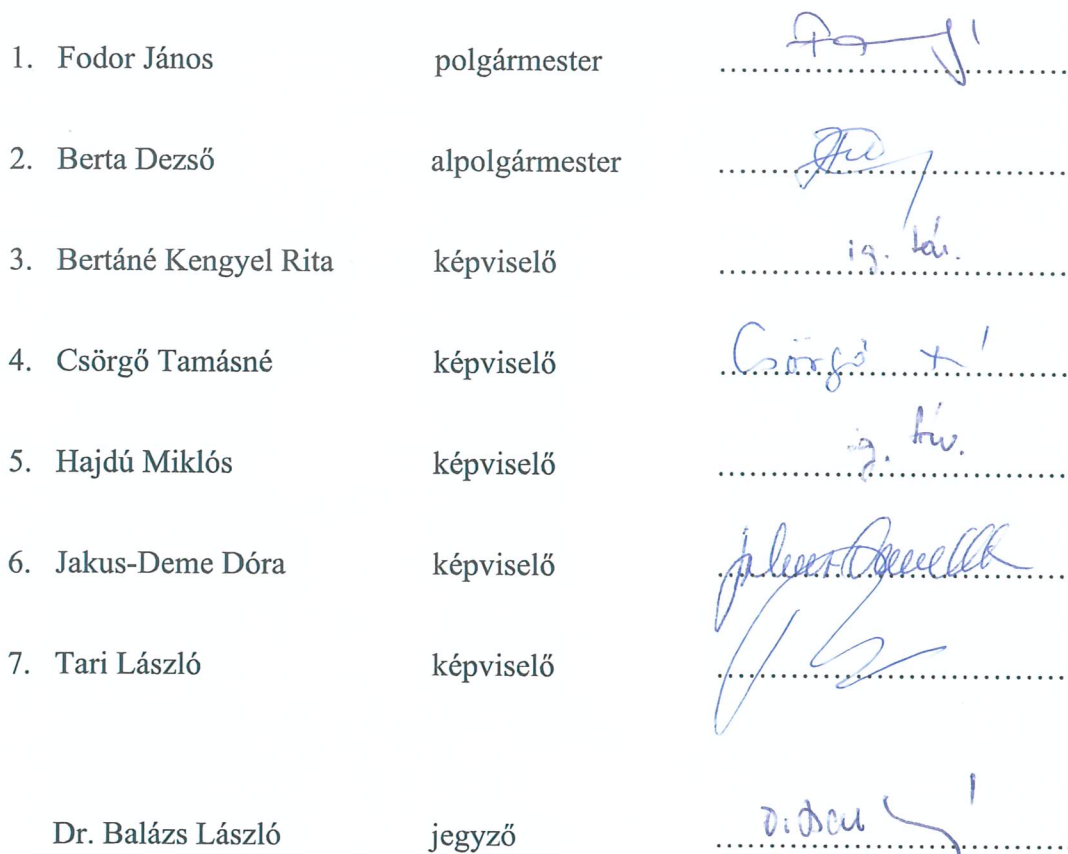 1. Fodor János polgármester
2. Berta Dezső alpolgármester
3. Bertáné Kengyel Rita képviselő ig. táv.
4. Csörgő Tamásné képviselő Csörgő
5. Hajdú Miklós képviselő ig. táv.
6. Jakus-Deme Dóra képviselő
7. Tari László képviselő
Dr. Balázs László jegyző